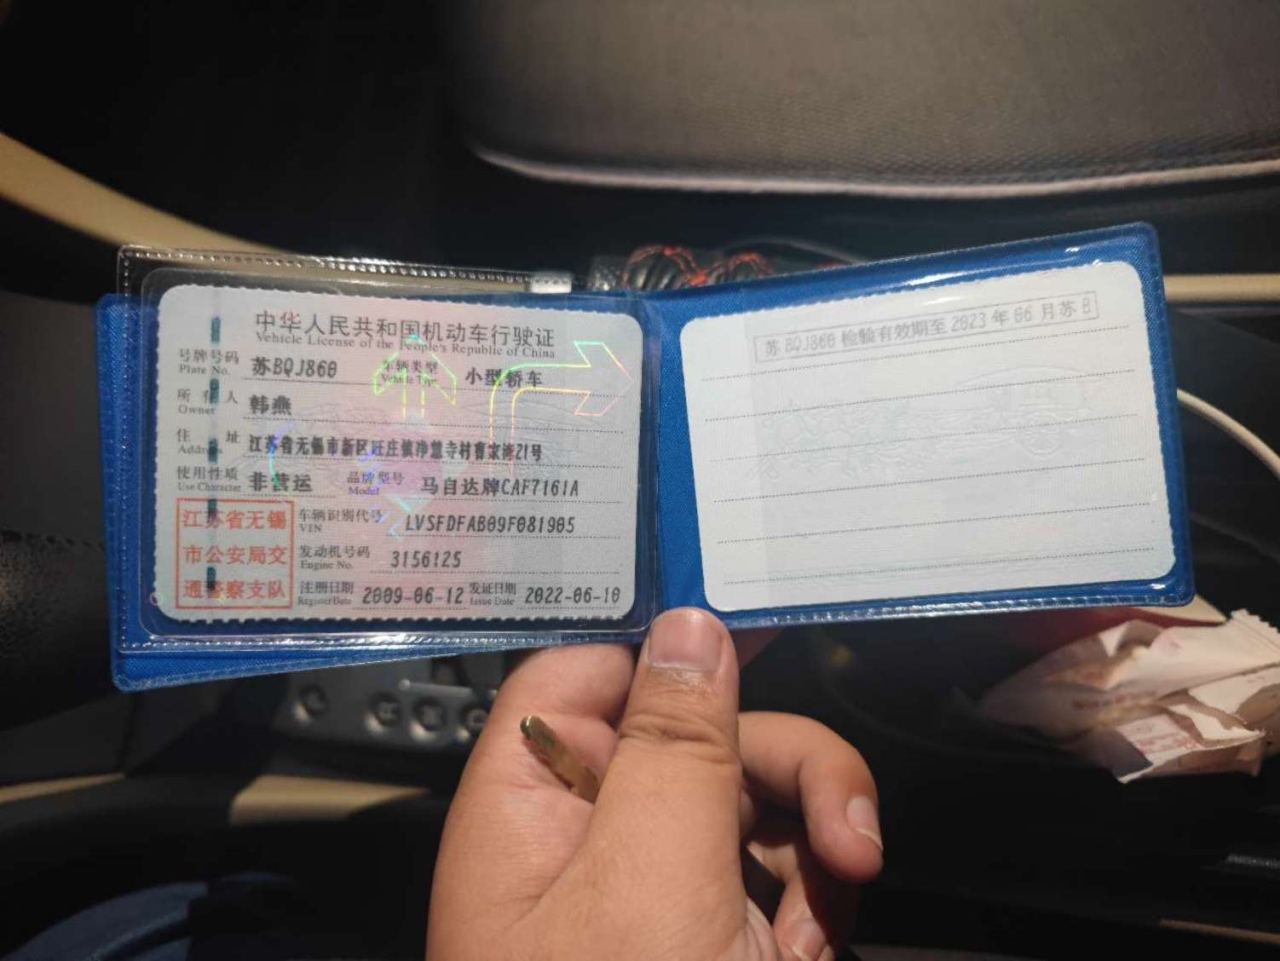 中华人民共和国机动车行驶证
Vehicle License of the People's Republic of China
号牌号码 Plate No. 苏BQJ860 车辆类型 Vehicle Type 小型轿车
所有人 Owner 韩燕
住址 Address 江苏省无锡市新区旺庄镇净慧寺村曹家湾21号
使用性质 Use Character 非营运 品牌型号 Model 马自达牌CAF7161A
江苏省无锡
市公安局交
通警察支队
车辆识别代号 VIN LVSFDFAB09F081905
发动机号码 Engine No. 3156125
注册日期 Register Date 2009-06-12 发证日期 Issue Date 2022-06-10
苏BQJ860 检验有效期至 2023 年 06 月苏 B